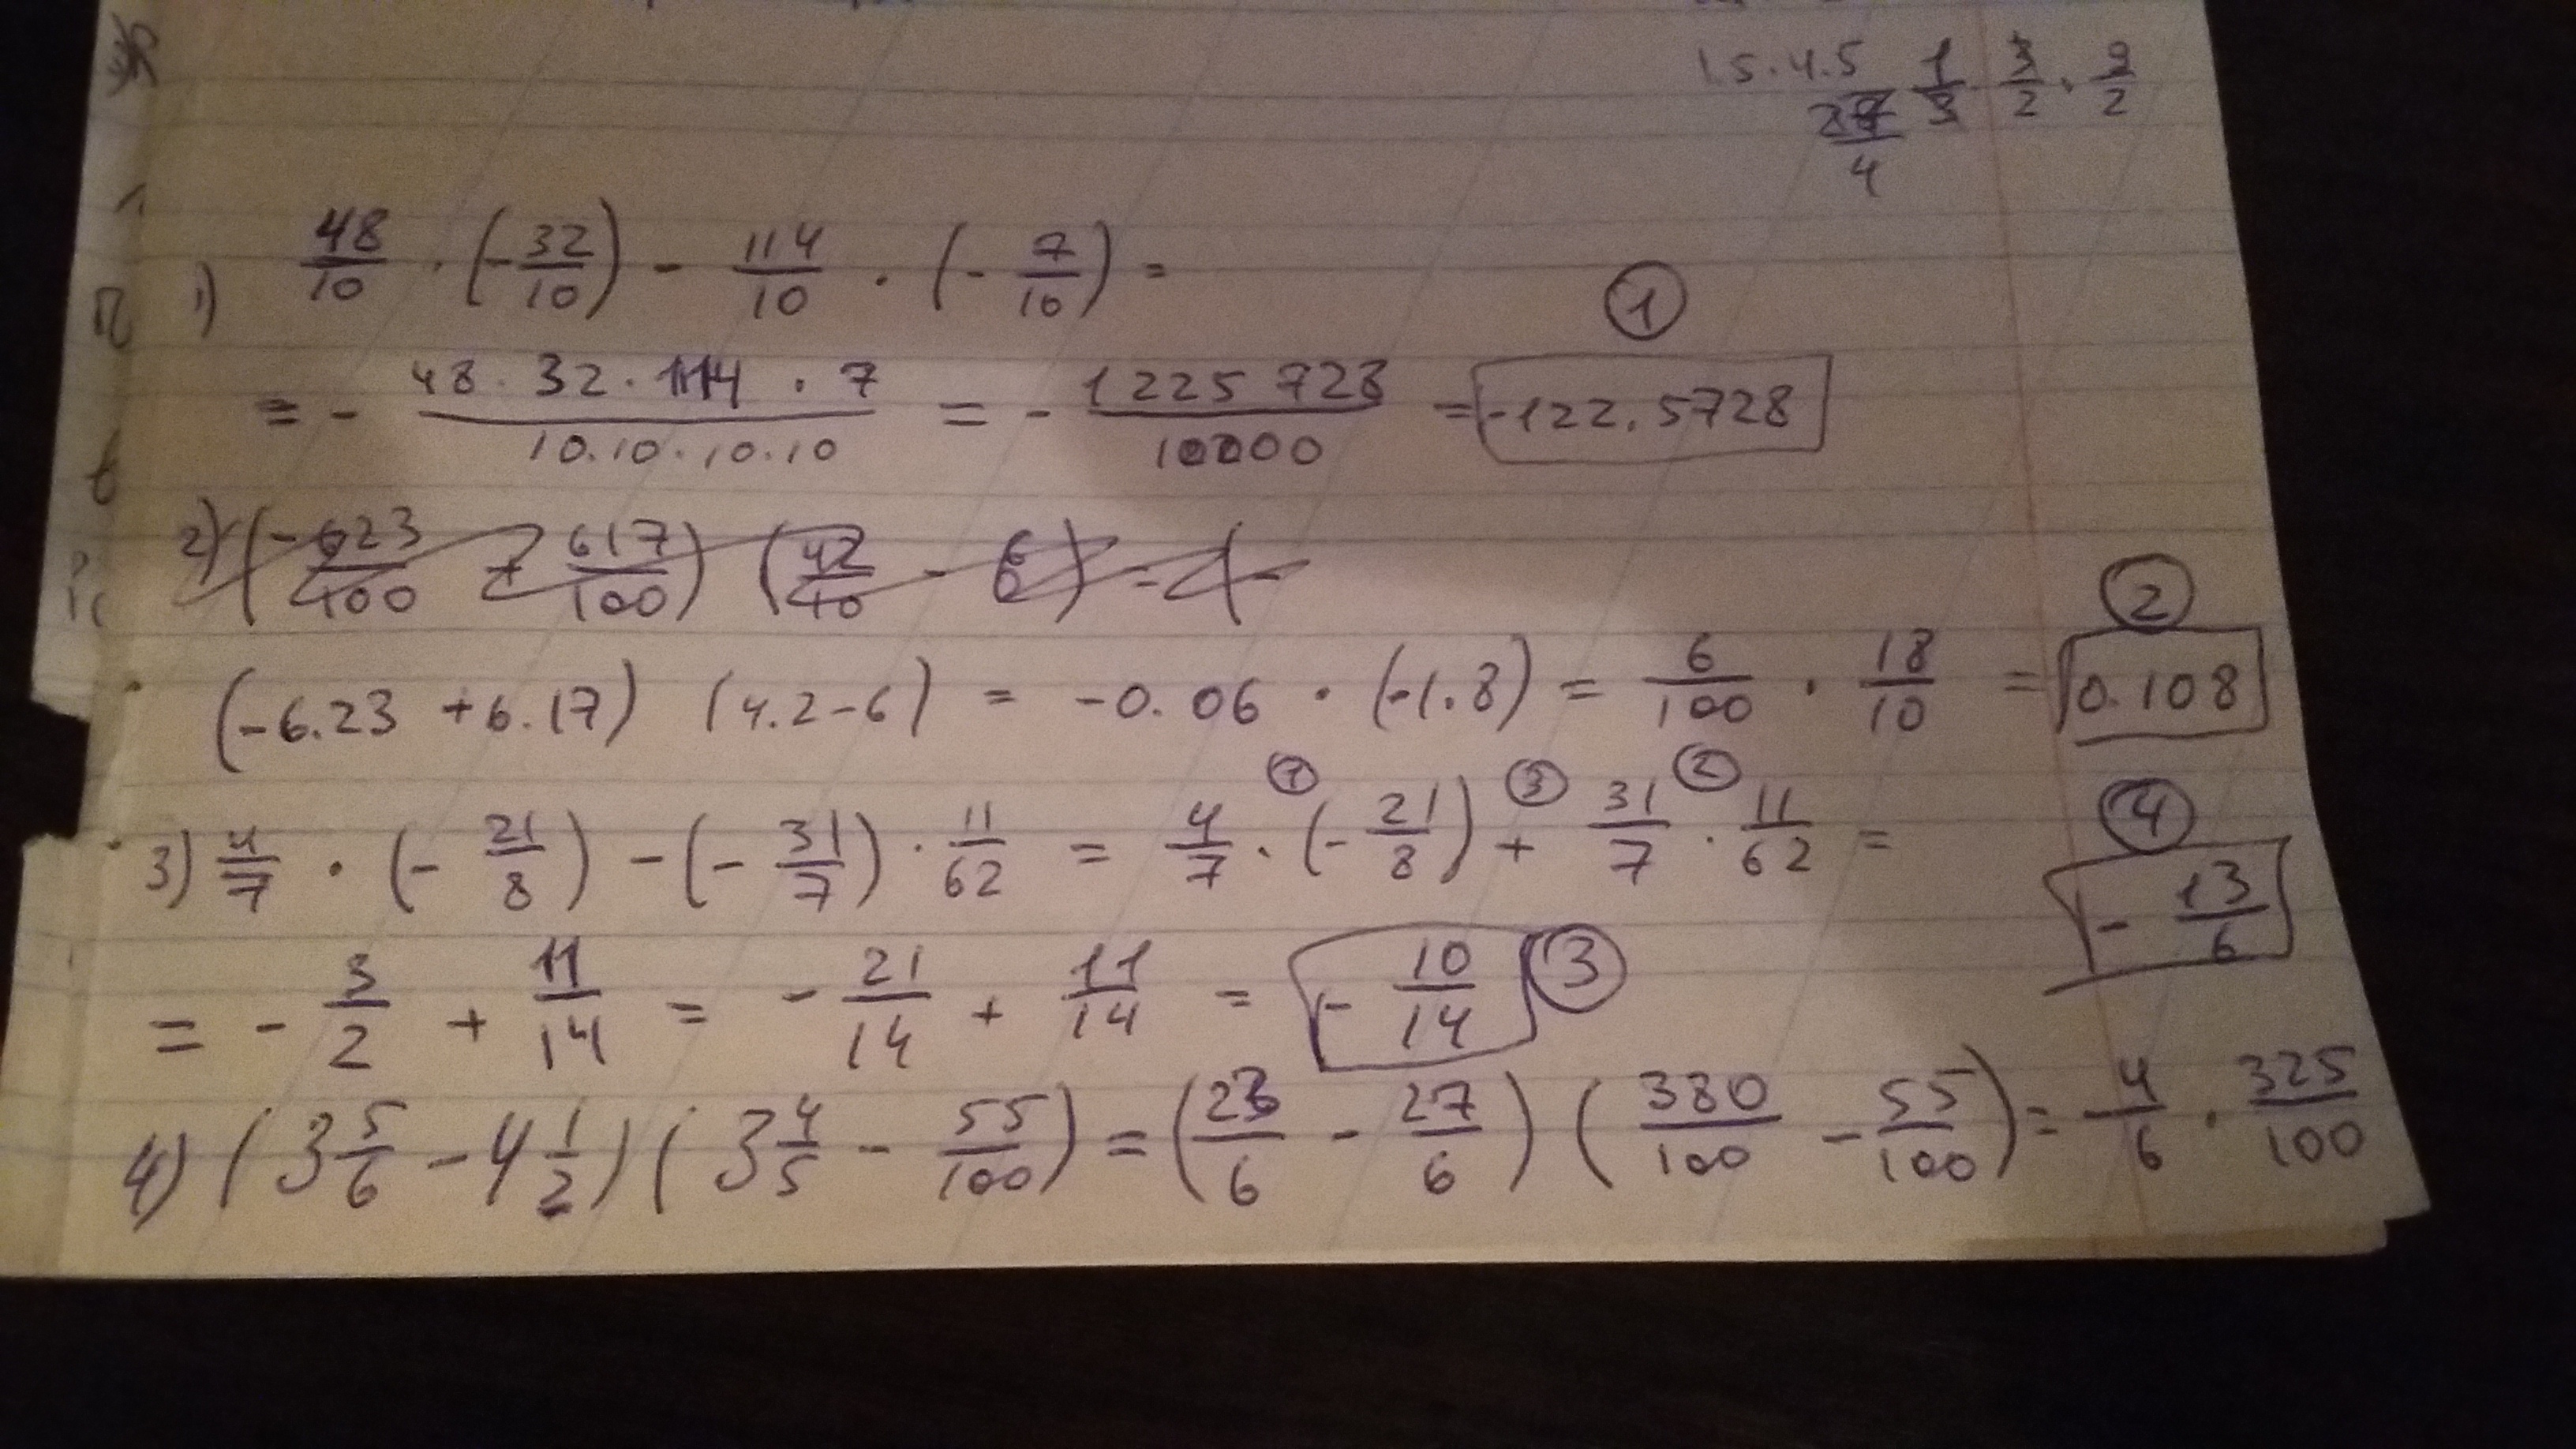 1.5 · 4.5
1/3 · 3/2 · 9/2
4
1) 48/10 · (- 32/10) - 114/10 · (- 7/10) =
= - 48 · 32 · 114 · 7 / 10 · 10 · 10 · 10 = - 1225728/10000 = -122.5728 ①
2) (- 623/100 + 617/100) (42/10 - 6) = (-
(-6.23 + 6.17) (4.2-6) = -0.06 · (-1.8) = 6/100 · 18/10 = 0.108 ②
3) 4/7 · (- 21/8) - (- 31/7) · 11/62 = 4/7 ① · (- 21/8) ③ + 31/7 ② · 11/62 =
= - 3/2 + 11/14 = - 21/14 + 11/14 = - 10/14 ③
④ - 13/6
4) (3 5/6 - 4 1/2) (3 4/5 - 55/100) = (23/6 - 27/6) (380/100 - 55/100) = - 4/6 · 325/100